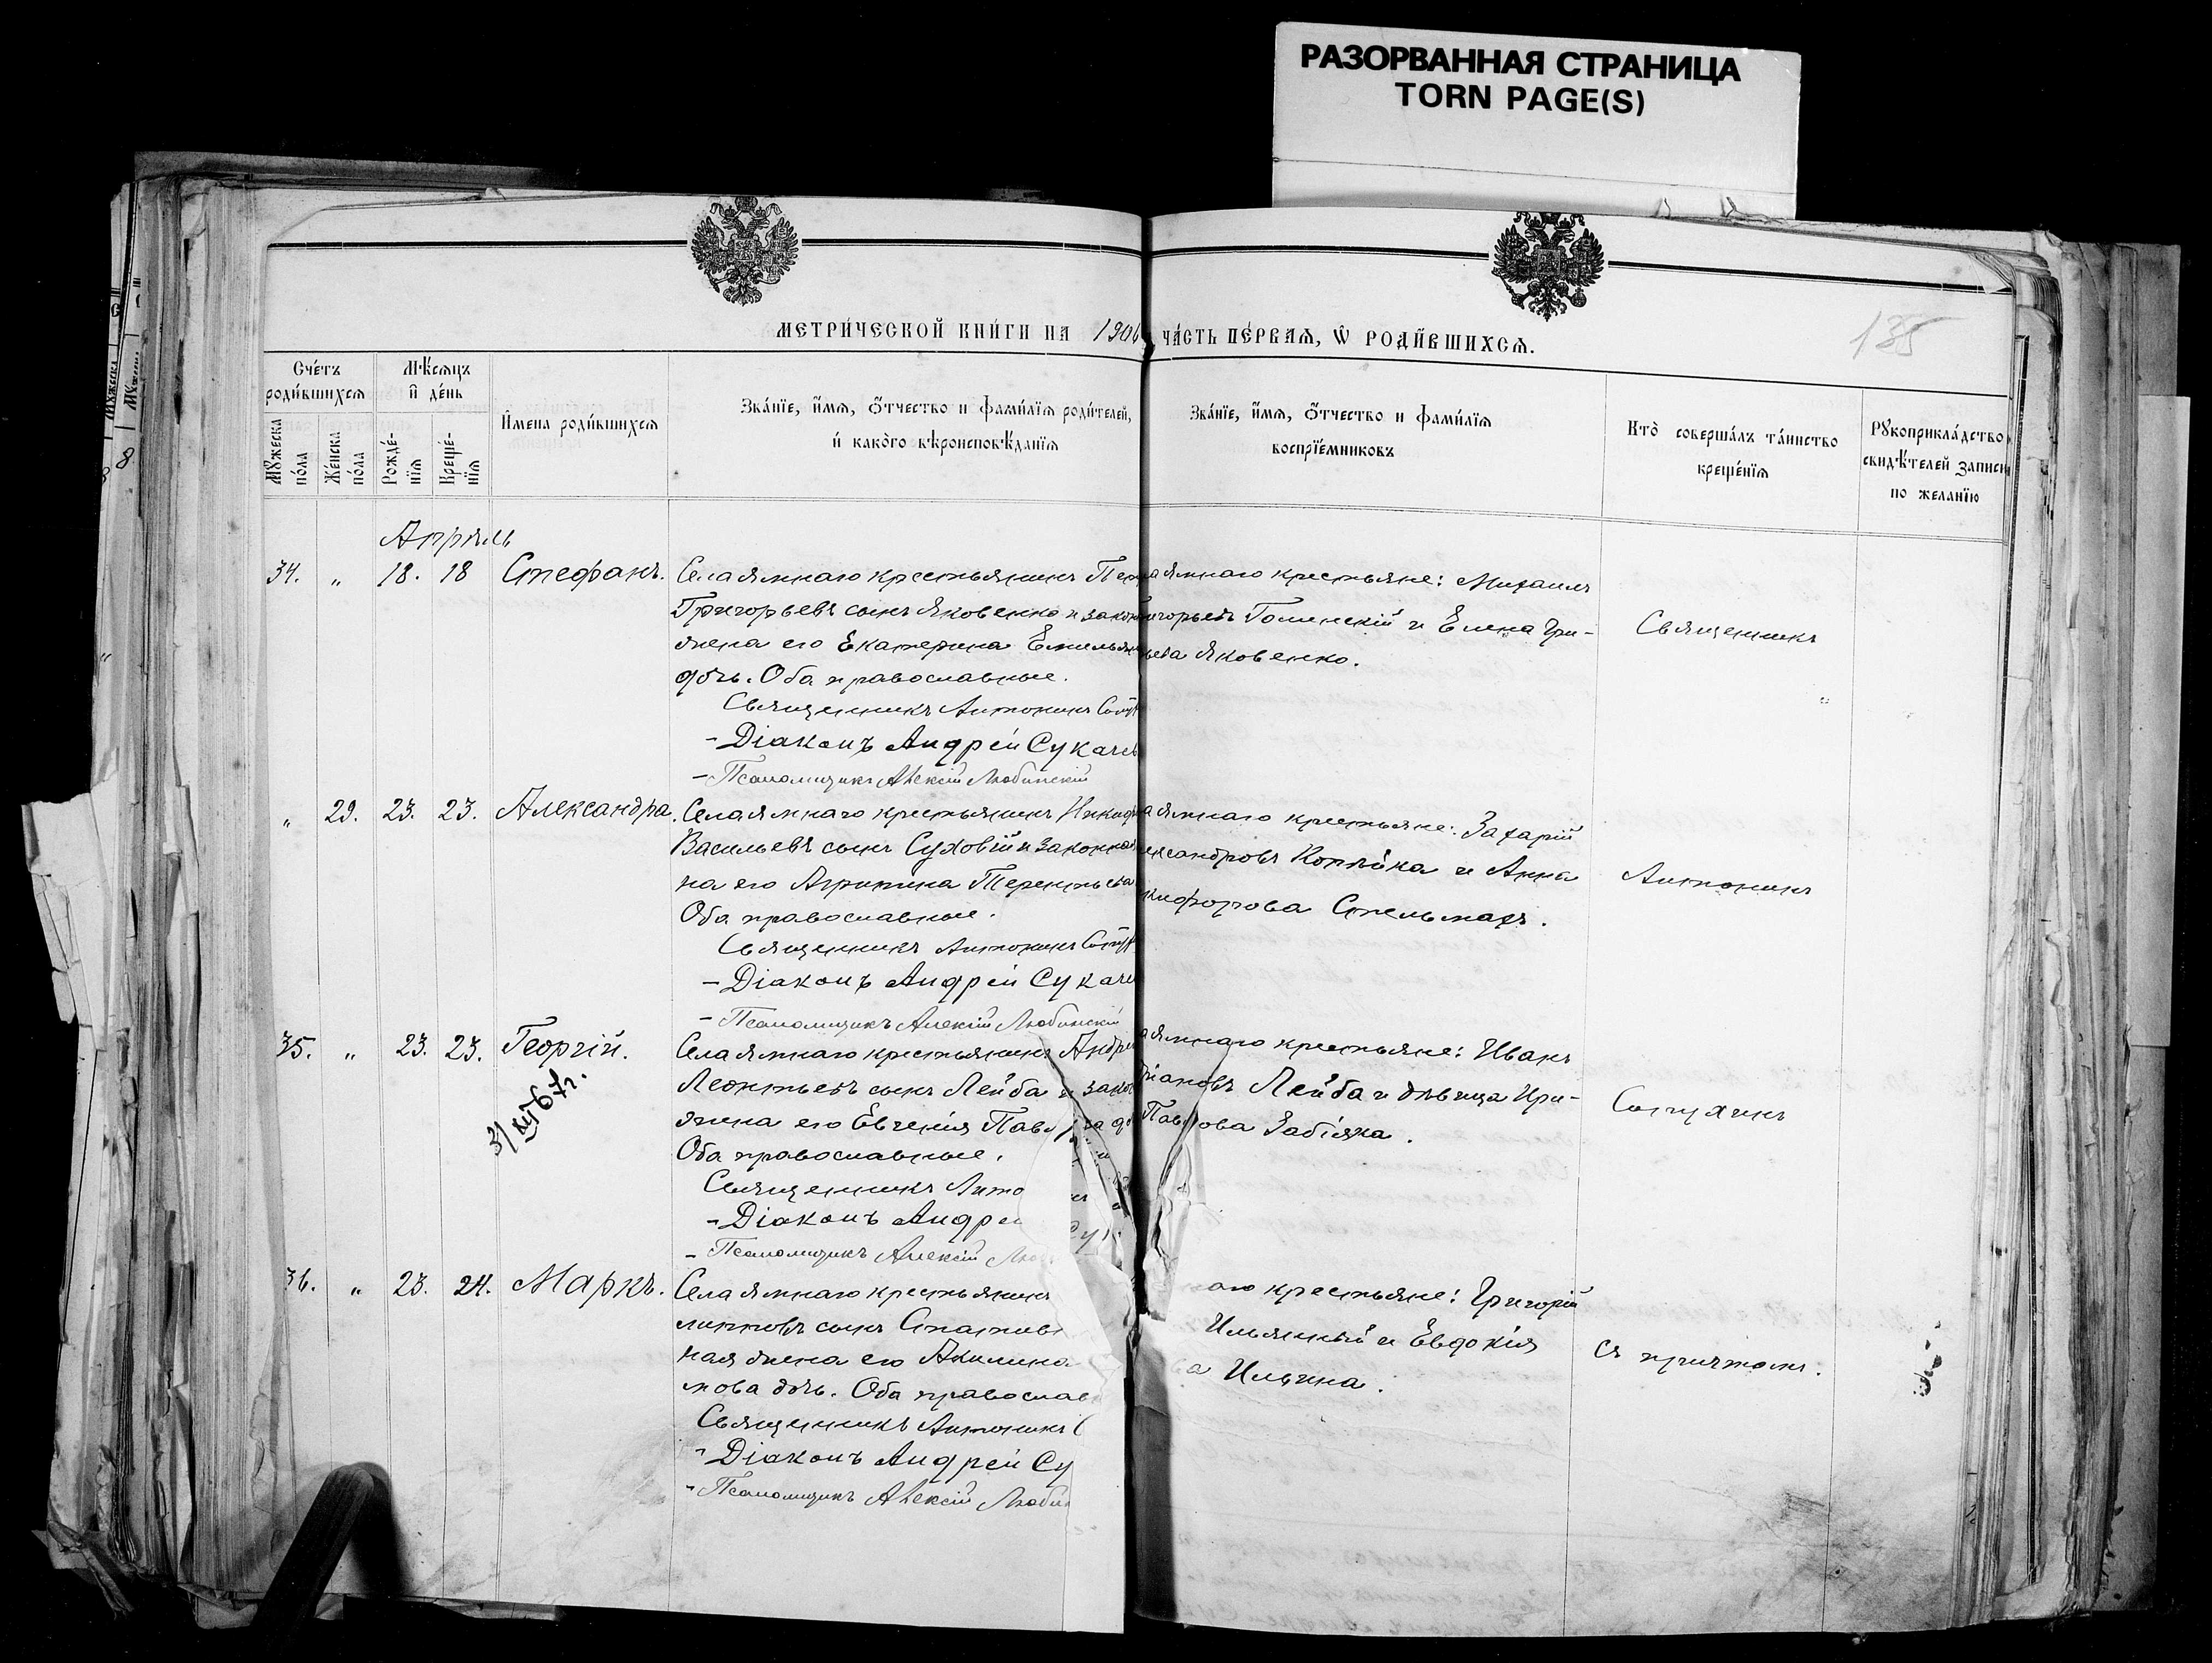 РАЗОРВАННАЯ СТРАНИЦА
TORN PAGE(S)
МЕТРИ́ЧЕСКОЙ КНИ́ГИ НА 1906 ЧА́СТЬ ПЕ́РВАѦ, Ѡ РОДИ́ВШИХСѦ.
135
Сче́тъ роди́вшихсѧ
Мѣ́сѧцъ и҆ де́нь
Мꙋ́жеска по́ла
Же́нска по́ла
Рожде́нїѧ
Креще́нїѧ
И҆мена роди́вшихсѧ
Зва́нїе, и҆́мѧ, ѻ҆́тчество и фами́лїѧ роди́телей,
и҆ како́го вѣроисповѣ́данїѧ
Зва́нїе, и҆́мѧ, ѻ҆́тчество и фами́лїѧ
воспрїе́мниковъ
Кто̀ соверша́лъ та́инство
креще́нїѧ
Рꙋкоприкла́дство
свидѣ́телей записи
по жела́нїю
Апрѣль
34. „ 18. 18 Стефанъ.
Села Ямнаго крестьянинъ
Григорьевъ сынъ Яковенко и закон
жена его Екатерина Емельян
дочь. Оба православные.
Священникъ Антонинъ
- Діаконъ Андрей Сукаче
- Псаломщикъ Алексій Любинскій
а Ямнаго крестьяне: Михаилъ
игорьевъ Голинскій и Елена Гри-
ьева Яковенко.
Священникъ
„ 29. 23. 23. Александра.
Села Ямнаго крестьянинъ Никиф
Васильевъ сынъ Суховій и законная
на его Агрипина Терентьева
Оба православные.
Священникъ Антонинъ
- Діаконъ Андрей Сукаче
- Псаломщикъ Алексій Любинскій
а Ямнаго крестьяне: Захарій
ександровъ Копѣйка и Анна
кифорова Стельмахъ.
Антонинъ
35. „ 23. 23. Георгій.
Села Ямнаго крестьянинъ Андре
Леонтьевъ сынъ Лейба и зако
жена его Евгенія Павл ва д
Оба православные.
Священникъ Анто
- Діаконъ Андре
- Псаломщикъ Алексій Лю
а Ямнаго крестьяне: Иванъ
Лейба и дѣвица Ири-
Павлова Забіяка.
36. „ 23. 24. Маркъ.
Села Ямнаго крестьянинъ
липповъ сынъ
ная жена его Акилина
мова дочь. Оба православ
Священникъ Антонинъ С
- Діаконъ Андрей Су
- Псаломщикъ Алексій Любин
аго крестьяне: Григорій
Ильинный и Евдокія
ва Ильина.
съ причтомъ.